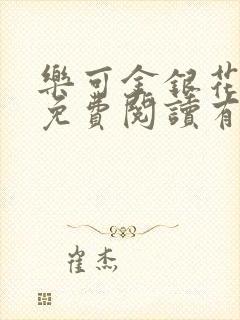 樂可金銀花
免費閱讀有
崔杰